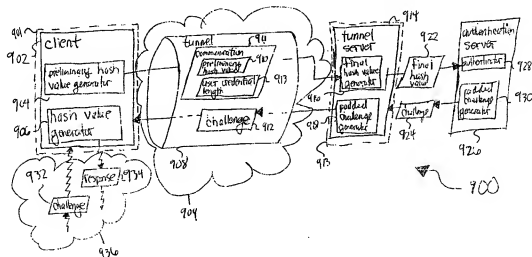 901
902
client
preliminary hash
value generator
904
906
hash value
generator
932
challenge
response
934
936
tunnel
911
communication
preliminary
hash value
910
user credential
length
913
challenge
912
908
904
tunnel
server
914
final
hash value
generator
padded
challenge
generator
913
922
final
hash
value
challenge
924
authentication
server
authenticator
928
padded
challenge
generator
930
926
900